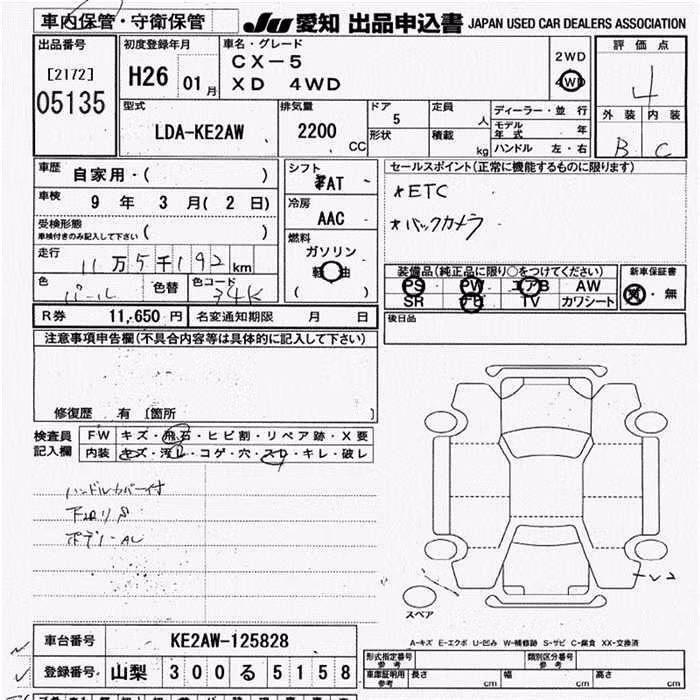 車内保管・守衛保管
JU 愛知 出品申込書 JAPAN USED CAR DEALERS ASSOCIATION
出品番号
[2172]
05135
初度登録年月
H26 01 月
車名・グレード
CX-5
XD 4WD
2WD
4WD
評価点
4
外装 内装
B C
型式
LDA-KE2AW
排気量
2200
CC
ドア
5
形状
定員
人
積載
kg
ディーラー・並行
モデル年式 年
ハンドル 左・右
車歴
自家用・( )
車検
9 年 3 月( 2 日)
受検形態
車検付きのみ記入して下さい ( )
走行
11万5千192 km
色
パール
色替
色コード
34K
シフト
AT
冷房
AAC
燃料
ガソリン
軽油
( )
セールスポイント(正常に機能するものに限ります)
*ETC
*バックカメラ
装備品(純正品に限り○をつけてください)
PS PW エアB AW
SR ナビ TV カワシート
新車保証書
有・無
R券 11,650 円 名変通知期限 月 日
後日品
注意事項申告欄(不具合内容等は具体的に記入して下さい)
修復歴 有 [箇所 ]
検査員
記入欄
FW キズ・飛石・ヒビ割・リペア跡・X要
内装 キズ・汚レ・コゲ・穴・スレ・キレ・破レ
ハンドルカバー付
下回りS
ボデーAU
スペア
A-キズ E-エクボ U-凹み W-補修跡 S-サビ C-腐食 XX-交換済
車台番号 KE2AW-125828
登録番号 山梨 300 る 5158
形式指定番号 参考
類別区分番号 参考
車庫証明用 参考
長さ cm 幅 cm 高さ cm